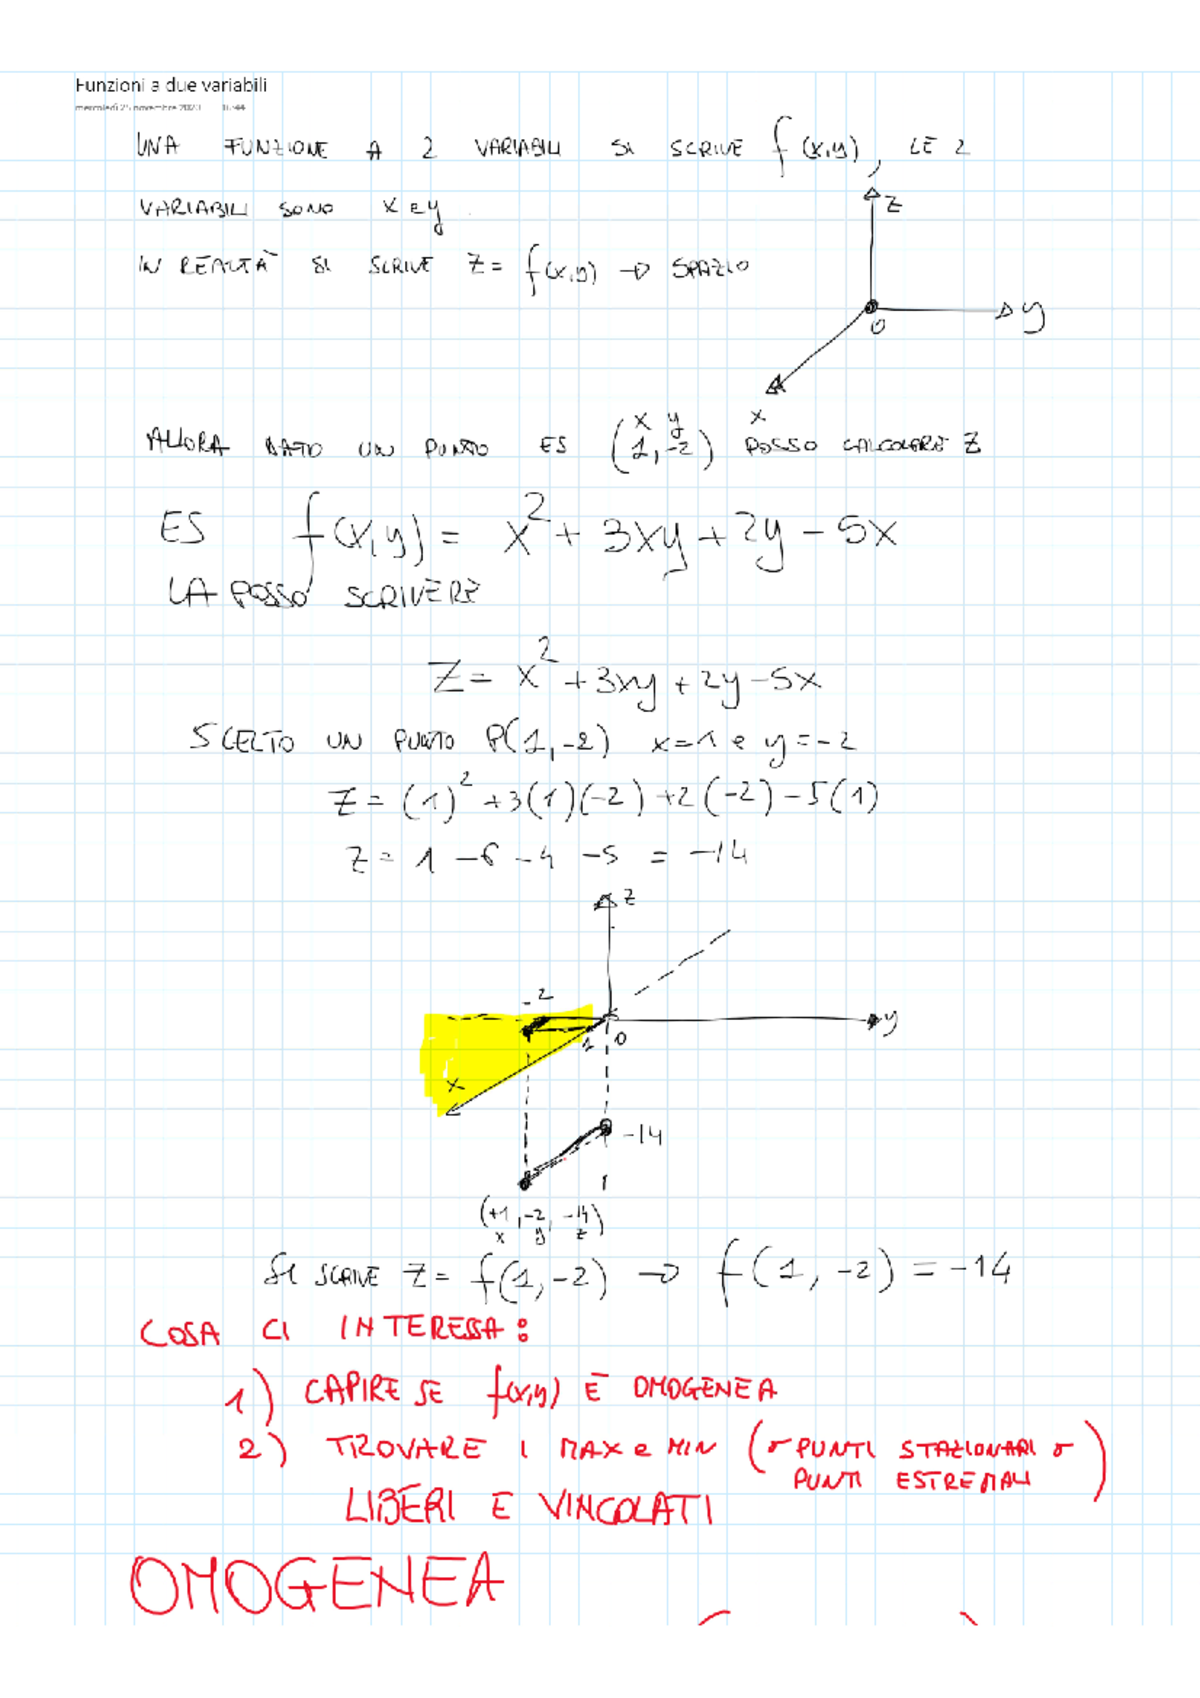 Funzioni a due variabili
mercoledì 25 novembre 2020
UNA FUNZIONE A 2 VARIABILI SI SCRIVE f(x,y), LE 2
VARIABILI SONO x e y
IN REALTÀ SI SCRIVE z = f(x,y) → SPAZIO
z
0
y
x
ALLORA DATO UN PUNTO ES (1, -2) POSSO CALCOLARE Z
x y
ES f(x,y) = x² + 3xy + 2y - 5x
LA POSSO SCRIVERE
Z = x² + 3xy + 2y - 5x
SCELTO UN PUNTO P(1, -2) x=1 e y=-2
Z = (1)² + 3(1)(-2) + 2(-2) - 5(1)
Z = 1 - 6 - 4 - 5 = -14
z
-2
y
1 0
x
-14
(+1, -2, -14)
x y z
SI SCRIVE Z = f(1, -2) → f(1, -2) = -14
COSA CI INTERESSA:
1) CAPIRE SE f(x,y) È OMOGENEA
2) TROVARE I MAX e MIN (o PUNTI STAZIONARI o
PUNTI ESTREMALI)
LIBERI E VINCOLATI
OMOGENEA